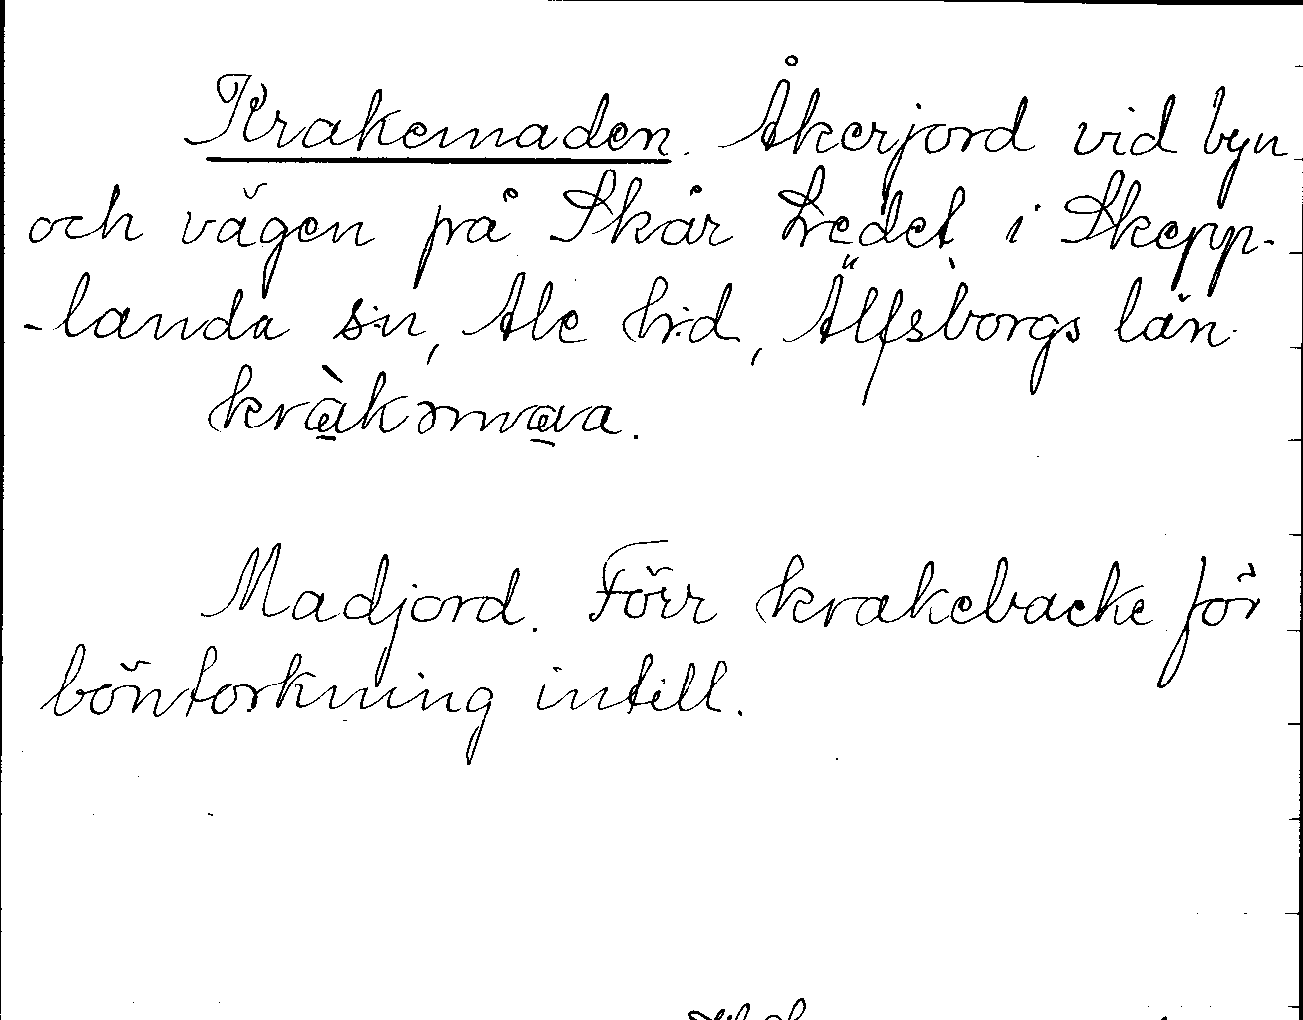 Krakemaden. Åkerjord vid byn
och vägen på Skår Ledet i Skepp-
-landa sn, Ale hd, Älfsborgs län.
kràkəmaa.
Madjord. Förr krakebacke för
böntorkning intill.